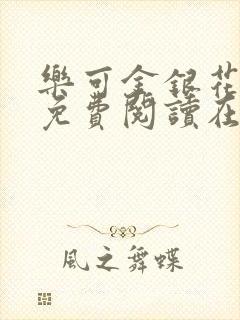 樂可金銀花
免費閱讀在
風之舞蝶